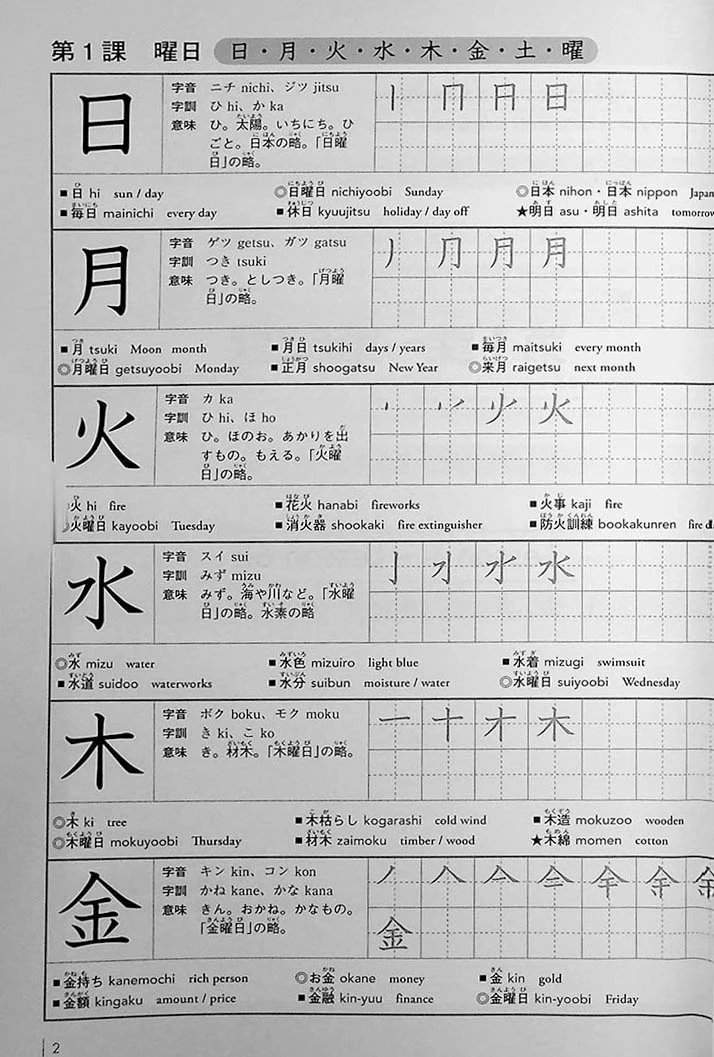 第1課 曜日 日・月・火・水・木・金・土・曜
日
字音 ニチ nichi、ジツ jitsu
字訓 ひ hi、か ka
意味 ひ。太陽。いちにち。ひ
ごと。日本の略。「日曜
日」の略。
■日 hi sun / day ◎日曜日 nichiyoobi Sunday ◎日本 nihon・日本 nippon Japan
■毎日 mainichi every day ■休日 kyuujitsu holiday / day off ★明日 asu・明日 ashita tomorrow
月
字音 ゲツ getsu、ガツ gatsu
字訓 つき tsuki
意味 つき。としつき。「月曜
日」の略。
■月 tsuki Moon month ■月日 tsukihi days / years ■毎月 maitsuki every month
◎月曜日 getsuyoobi Monday ■正月 shoogatsu New Year ◎来月 raigetsu next month
火
字音 カ ka
字訓 ひ hi、ほ ho
意味 ひ。ほのお。あかりを出
すもの。もえる。「火曜
日」の略。
火 hi fire ■花火 hanabi fireworks ■火事 kaji fire
火曜日 kayoobi Tuesday ■消火器 shookaki fire extinguisher ■防火訓練 bookakunren fire
水
字音 スイ sui
字訓 みず mizu
意味 みず。海や川など。「水曜
日」の略。水素の略
◎水 mizu water ■水色 mizuiro light blue ■水着 mizugi swimsuit
■水道 suidoo waterworks ■水分 suibun moisture / water ◎水曜日 suiyoobi Wednesday
木
字音 ボク boku、モク moku
字訓 き ki、こ ko
意味 き。材木。「木曜日」の略。
◎木 ki tree ■木枯らし kogarashi cold wind ■木造 mokuzoo wooden
◎木曜日 mokuyoobi Thursday ■材木 zaimoku timber / wood ★木綿 momen cotton
金
字音 キン kin、コン kon
字訓 かね kane、かな kana
意味 きん。おかね。かなもの。
「金曜日」の略。
金
■金持ち kanemochi rich person ◎お金 okane money ■金 kin gold
■金額 kingaku amount / price ■金融 kin-yuu finance ◎金曜日 kin-yoobi Friday
2